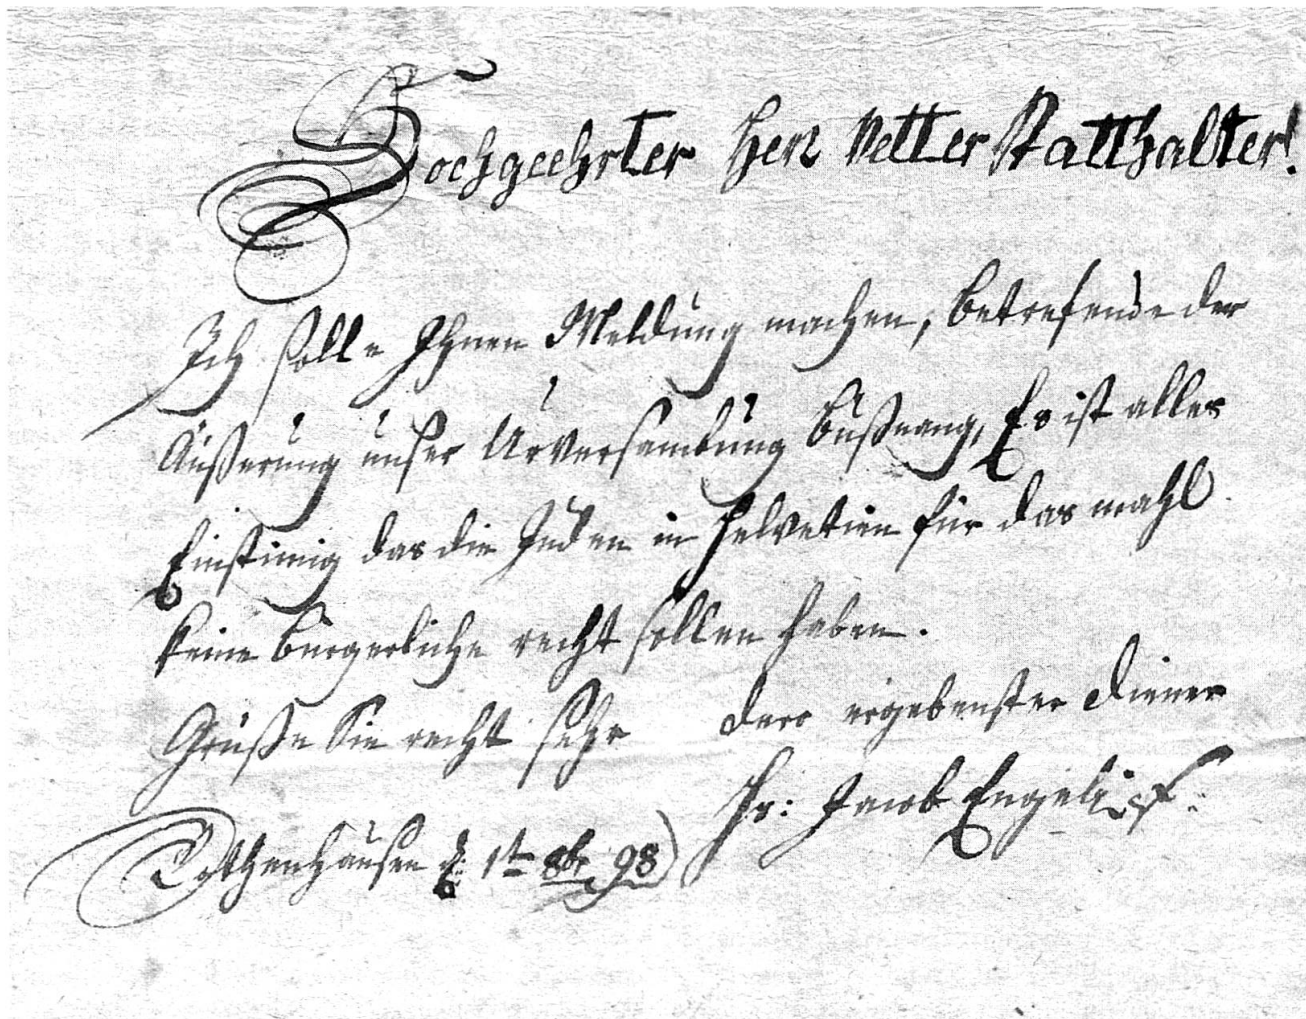 Hochgeehrter Herr Vetter Statthalter!
Ich solle Ihnen Meldung machen, betrefende der
Äußerung unser Urversamlung Bußnang, Es ist alles
Einstimig das die Juden in Helvetien für das mahl
keine bürgerliche recht sollen haben.
Grüße Sie recht sehr dero ergebenster Diener
Jacob Engeli
Rothenhausen d. 1t 8br 98